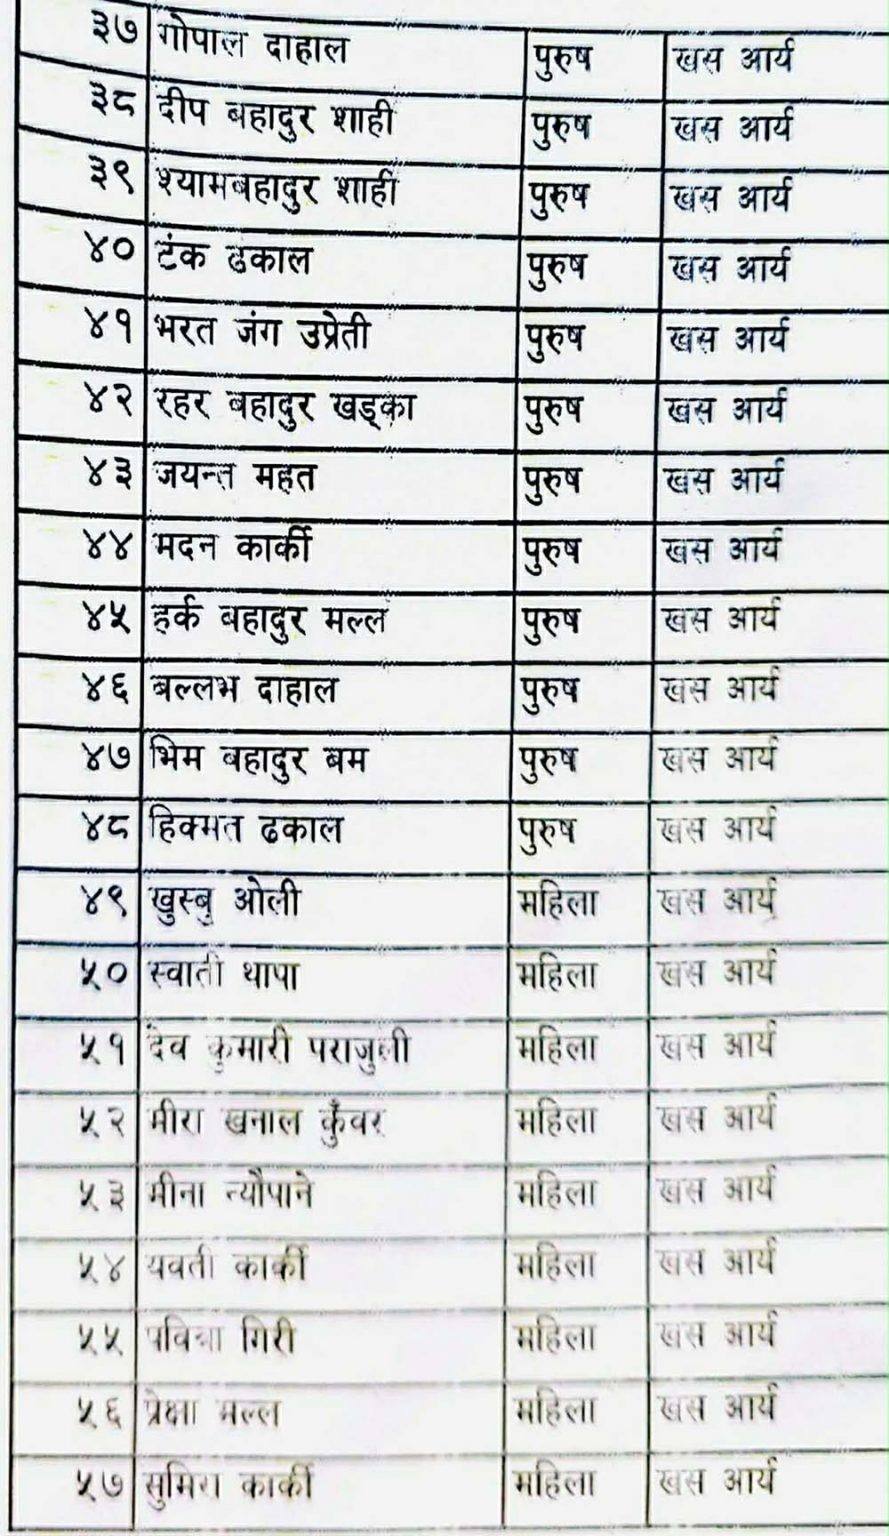 ३७ गोपाल दाहाल पुरुष खस आर्य
३८ दीप बहादुर शाही पुरुष खस आर्य
३९ श्यामबहादुर शाही पुरुष खस आर्य
४० टंक ढकाल पुरुष खस आर्य
४१ भरत जंग उप्रेती पुरुष खस आर्य
४२ रहर बहादुर खड्का पुरुष खस आर्य
४३ जयन्त महत पुरुष खस आर्य
४४ मदन कार्की पुरुष खस आर्य
४५ हर्क बहादुर मल्ल पुरुष खस आर्य
४६ बल्लभ दाहाल पुरुष खस आर्य
४७ भिम बहादुर बम पुरुष खस आर्य
४८ हिक्मत ढकाल पुरुष खस आर्य
४९ खुस्बु ओली महिला खस आर्य
५० स्वाती थापा महिला खस आर्य
५१ देव कुमारी पराजुली महिला खस आर्य
५२ मीरा खनाल कुँवर महिला खस आर्य
५३ मीना न्यौपाने महिला खस आर्य
५४ यवती कार्की महिला खस आर्य
५५ पवित्रा गिरी महिला खस आर्य
५६ प्रेक्षा मल्ल महिला खस आर्य
५७ सुमित्रा कार्की महिला खस आर्य